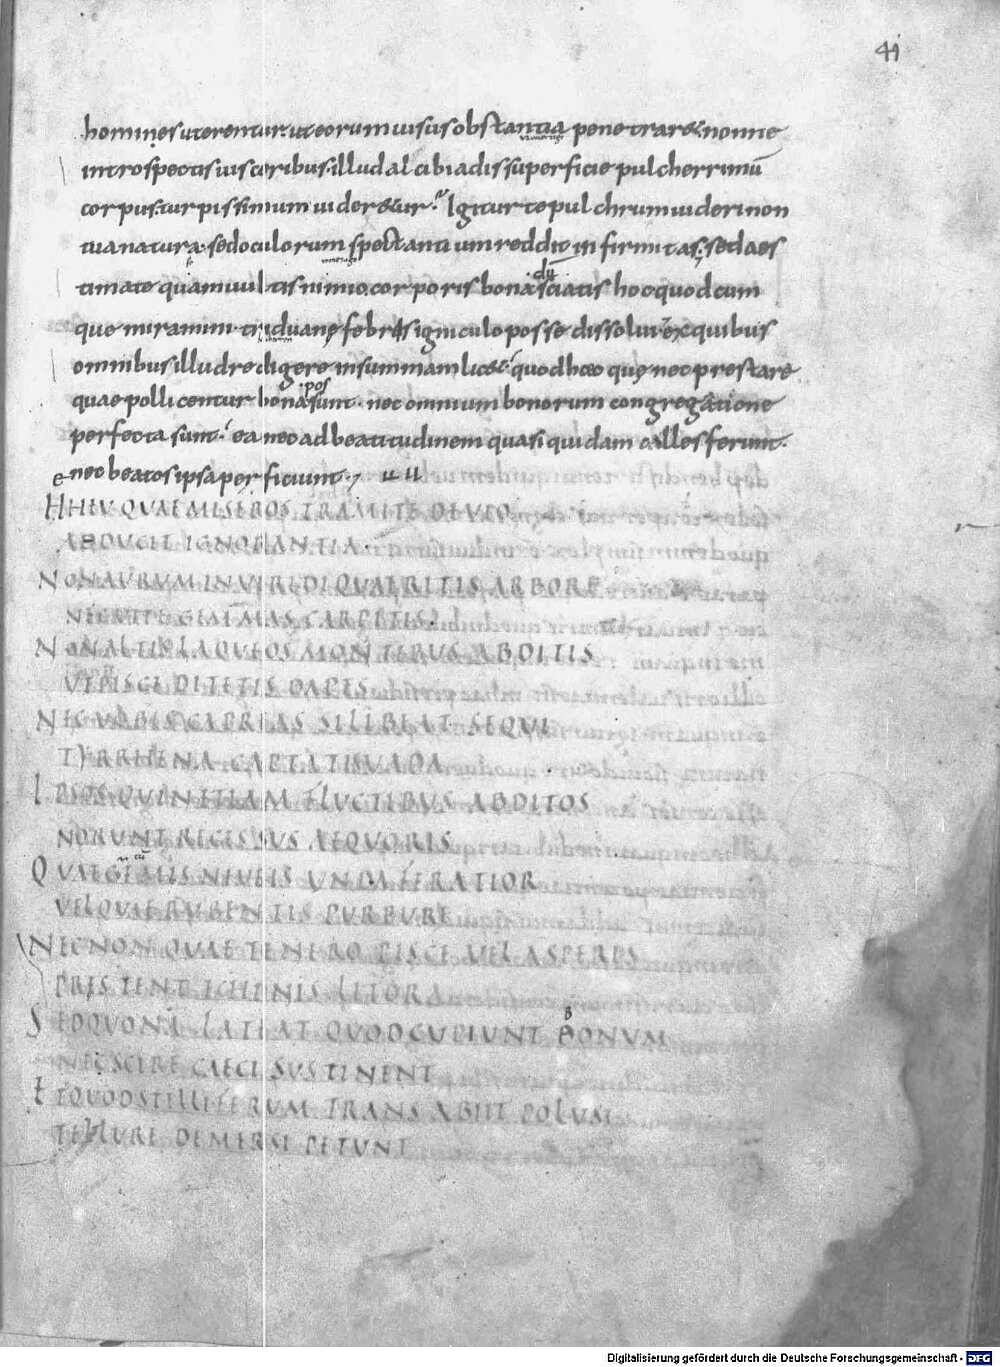 41
homines uterentur. ut eorum uisus obstantia penetraret nonne
introspectis uisceribus. illud alcibiadis superficie pulcherrimū
corpus. turpissimum uideretur. Igitur te pulchrum uideri non
tua natura. sed oculorum spectantium reddit infirmitas. sed aes
timate quam uultis nimio. corporis bona
dū sciatis hoc quodcum
que miramini. triduanę febris igniculo posse dissolui. ex quibus
omnibus illud redigere in summam licet. quod hęc quę nec prestare
quae pollicentur bona possunt. nec omnium bonorum congregatione
perfecta sunt. ea nec ad beatitudinem quasi quidam calles ferunt.
nec beatos ipsa perficiunt.
HHEU QUAE MISEROS TRAMITE DEVIO
ABDUCIT IGNORANTIA
NON AURUM IN VIRIDI QUAERITIS ARBORE
NEC VITE GEMMAS CARPITIS.
NON ALTIS LAQUEOS MONTIBUS ABDITIS
UT PISCE DITETIS DAPES
NEC VOBIS CAPREAS SI LIBEAT SEQUI
TYRRHENA CAPTATIS VADA
IPSOS QUIN ETIAM FLUCTIBUS ABDITOS
NORUNT RECESSUS AEQUORIS
QUAE GEMMIS NIVEIS UNDA FERATIOR
VEL QUAE RUBENTIS PURPURE
NEC NON QUAE TENERO PISCE VEL ASPERIS
PRESTENT ECHINIS LITORA
SED QUONA LATEAT QUOD CUPIUNT BONUM
NESCIRE CAECI SUSTINENT
ET QUOD STELLIFERUM TRANS ABIIT POLUM
TELLURE DEMERSI PETUNT
Digitalisierung gefördert durch die Deutsche Forschungsgemeinschaft - DFG